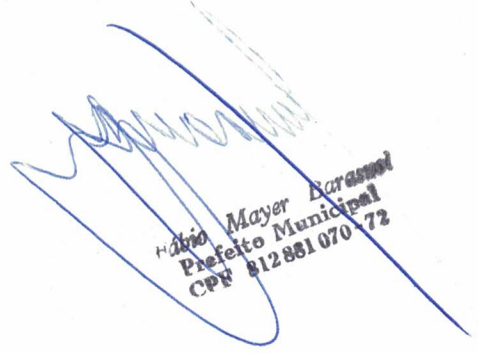 Fábio Mayer Barasuol
Prefeito Municipal
CPF 812881070-72